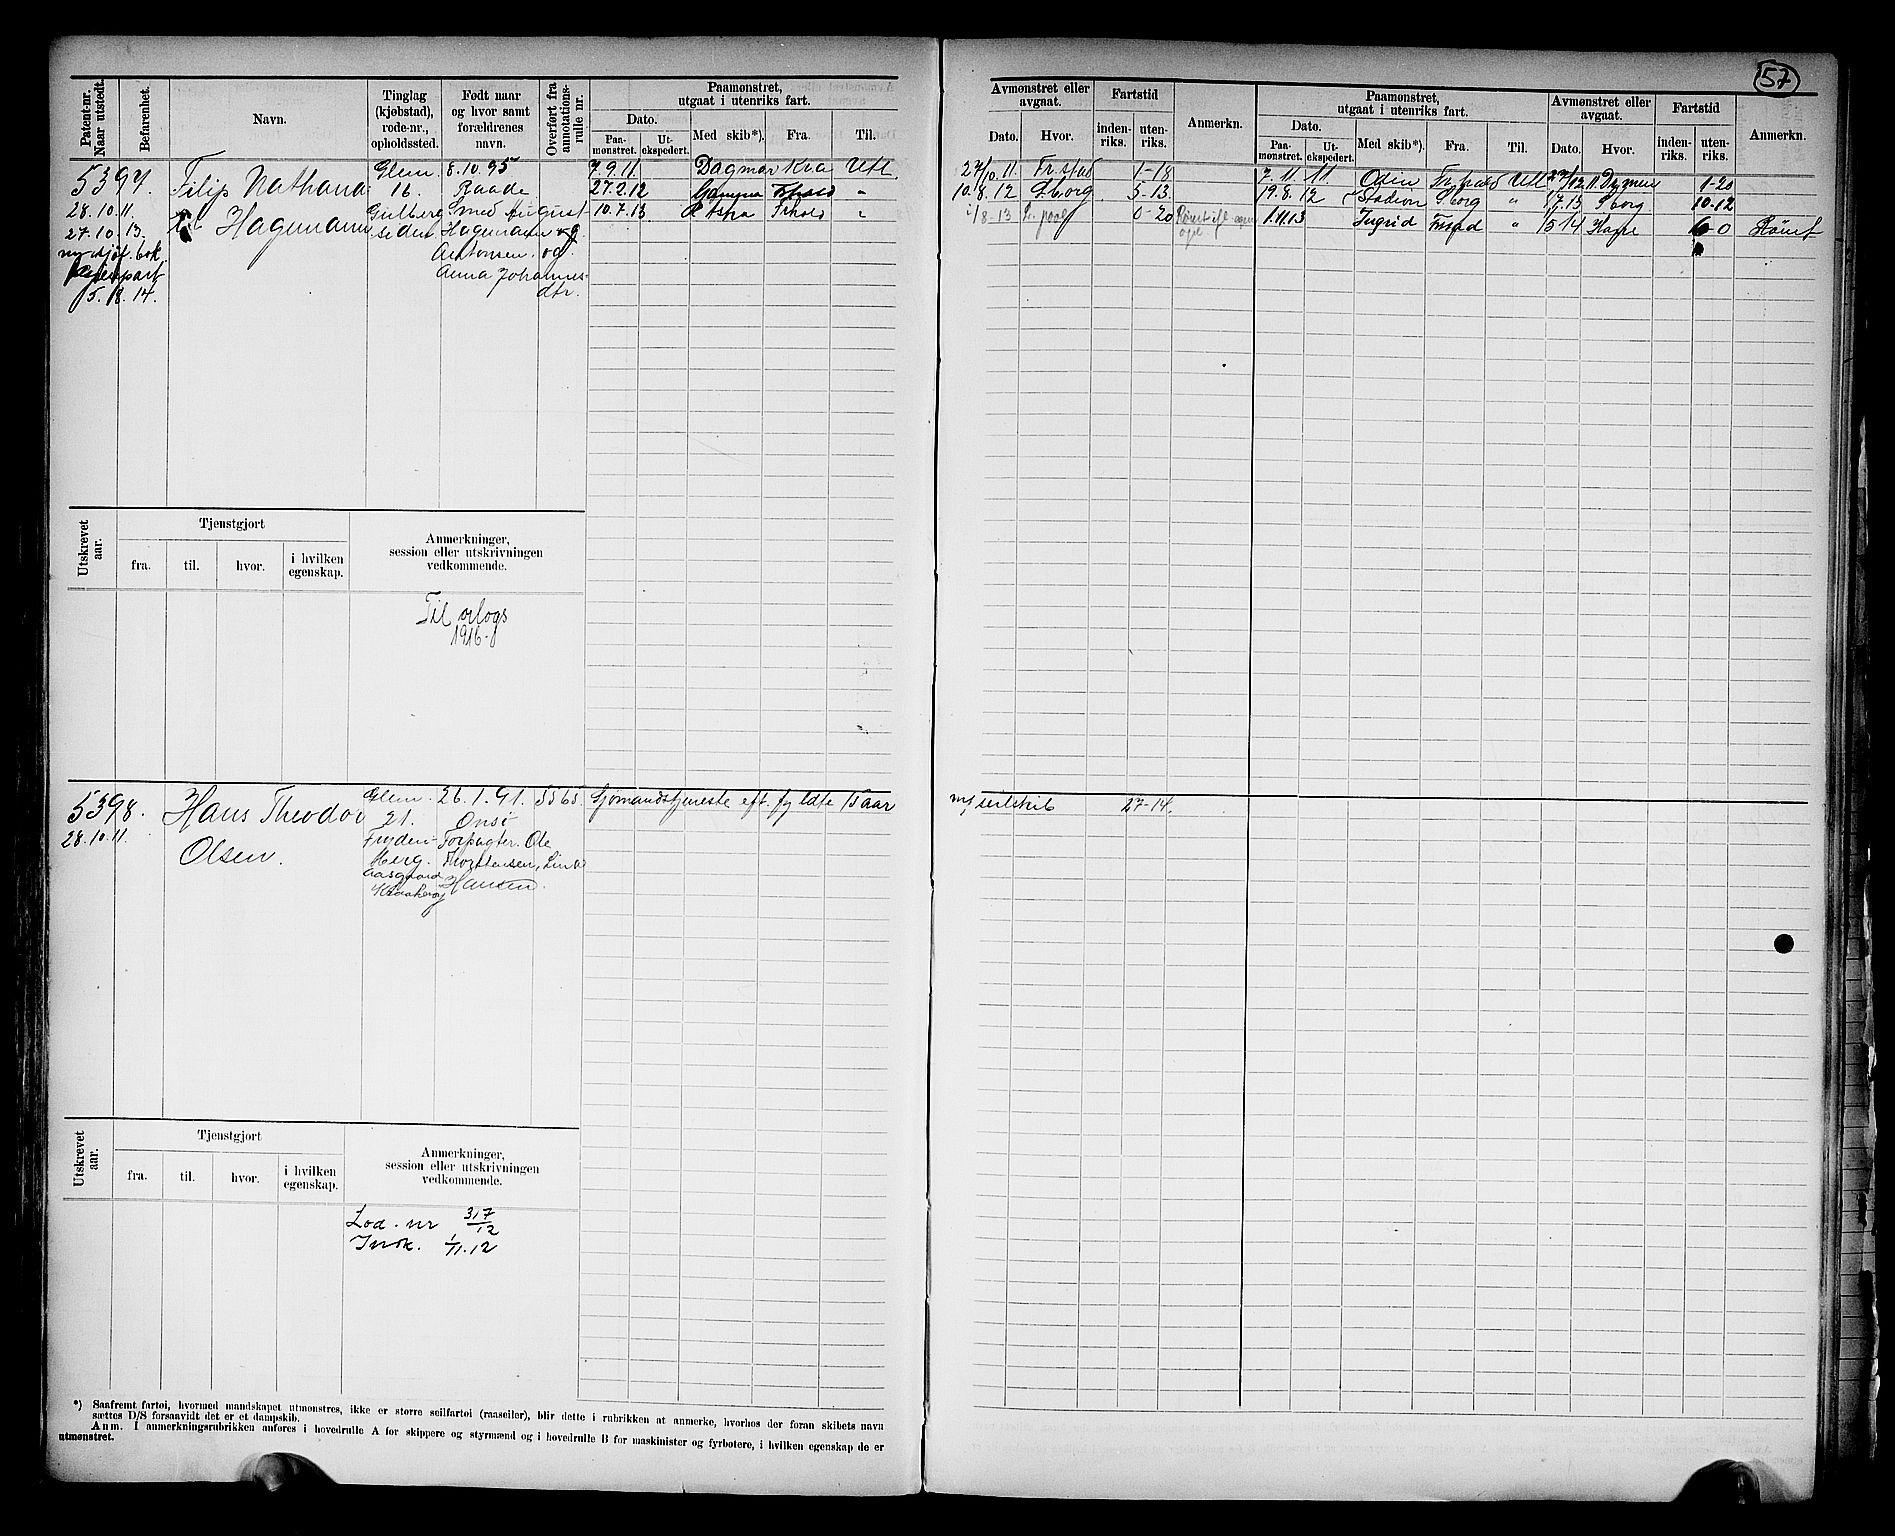 57
Patent-nr. Naar utstedt.
Befarenhet.
Navn.
Tinglag (kjøbstad), rode-nr., opholdssted.
Født naar og hvor samt forældrenes navn.
Overført fra annotations-rulle nr.
Paamønstret, utgaat i utenriks fart.
Dato.
Paa-mønstret.
Ut-ekspedert.
Med skib*).
Fra.
Til.
Avmønstret eller avgaat.
Dato.
Hvor.
Fartstid
inden-riks.
uten-riks.
Anmerkn.
Paamønstret, utgaat i utenriks fart.
Dato.
Paa-mønstret.
Ut-ekspedert.
Med skib*).
Fra.
Til.
Avmønstret eller avgaat.
Dato.
Hvor.
Fartstid
inden-riks.
uten-riks.
Anmerkn.
5397
28.10.11.
27.10.13.
5.8.14.
Filip Nathana
Hagemann
Glem.
16.
Gulberg
siden
8.10.95
Raade
Smed August
Hagemann og
Antonsen. og
Anna Johannes-
dtr.
7.9.11 Dagmar Kra Utl.
27.2.12 "
10.7.13 "
27/10.11. Fr.stad 1-18
10.8.12 Sborg 5-13
1/8-13 L.pool 0-20
7.11.11. Odin Fr.stad Utl 27/12 11 1-20
19.8.12 Stadion Sborg " 7.13 Sborg 10-12
1.11.13 Ingrid Frstad " Rømt
Utskrevet aar.
Tjenstgjort
fra.
til.
hvor.
i hvilken egenskap.
Anmerkninger, session eller utskrivningen vedkommende.
Til orlogs
1916.
5398.
28.10.11.
Hans Theodor
Olsen.
Glem.
21.
Fryden-
berg.
26.1.91.
Onsø
Forpagter. Ole
Hansen.
5565.
Sjømandstjeneste eft. fyldte 15 aar
m/seilskib 27-14.
Utskrevet aar.
Tjenstgjort
fra.
til.
hvor.
i hvilken egenskap.
Anmerkninger, session eller utskrivningen vedkommende.
Lod. nr 317/12
Inrk. 1/11.12
*) Saafremt fartøi, hvormed mandskapet utmønstres, ikke er større seilfartøi (raaseiler), blir dette i rubrikken at anmerke, hvorhos der foran skibets navn
sættes D/S forsaavidt det er et dampskib.
Anm. I anmerkningsrubrikken anføres i hovedrulle A for skippere og styrmænd og i hovedrulle B for maskinister og fyrbøtere, i hvilken egenskap de er
utmønstret.